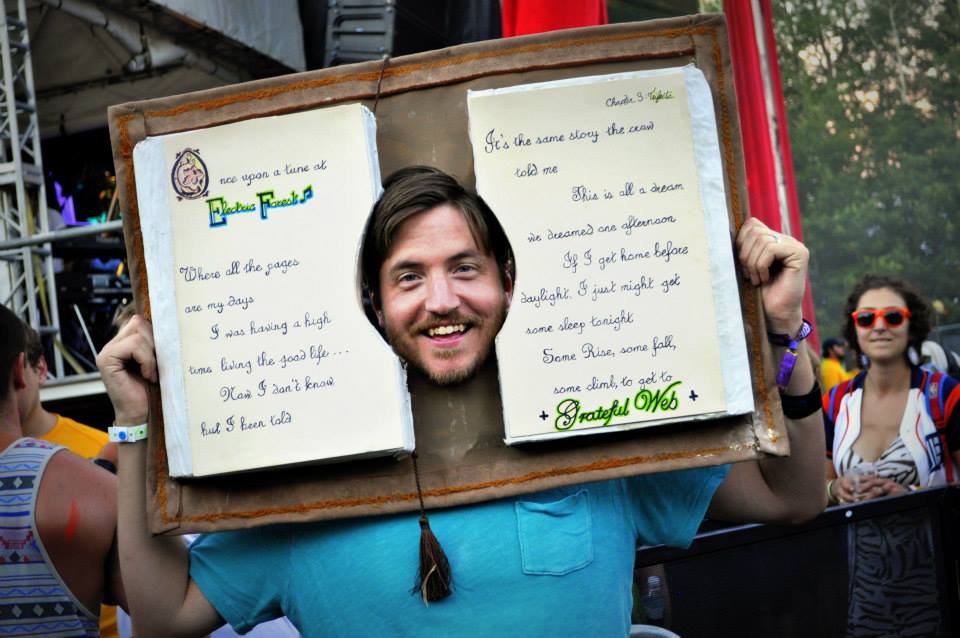 Once upon a tune at
Electric Forest
Where all the pages
are my days
I was having a high
time living the good life ....
Now I don't know
but I been told
Chapter 3:
It's the same story the crow
told me
This is all a dream
we dreamed one afternoon
If I get home before
daylight, I just might get
some sleep tonight
Some Rise, some fall,
some climb, to get to
+ Grateful Web +